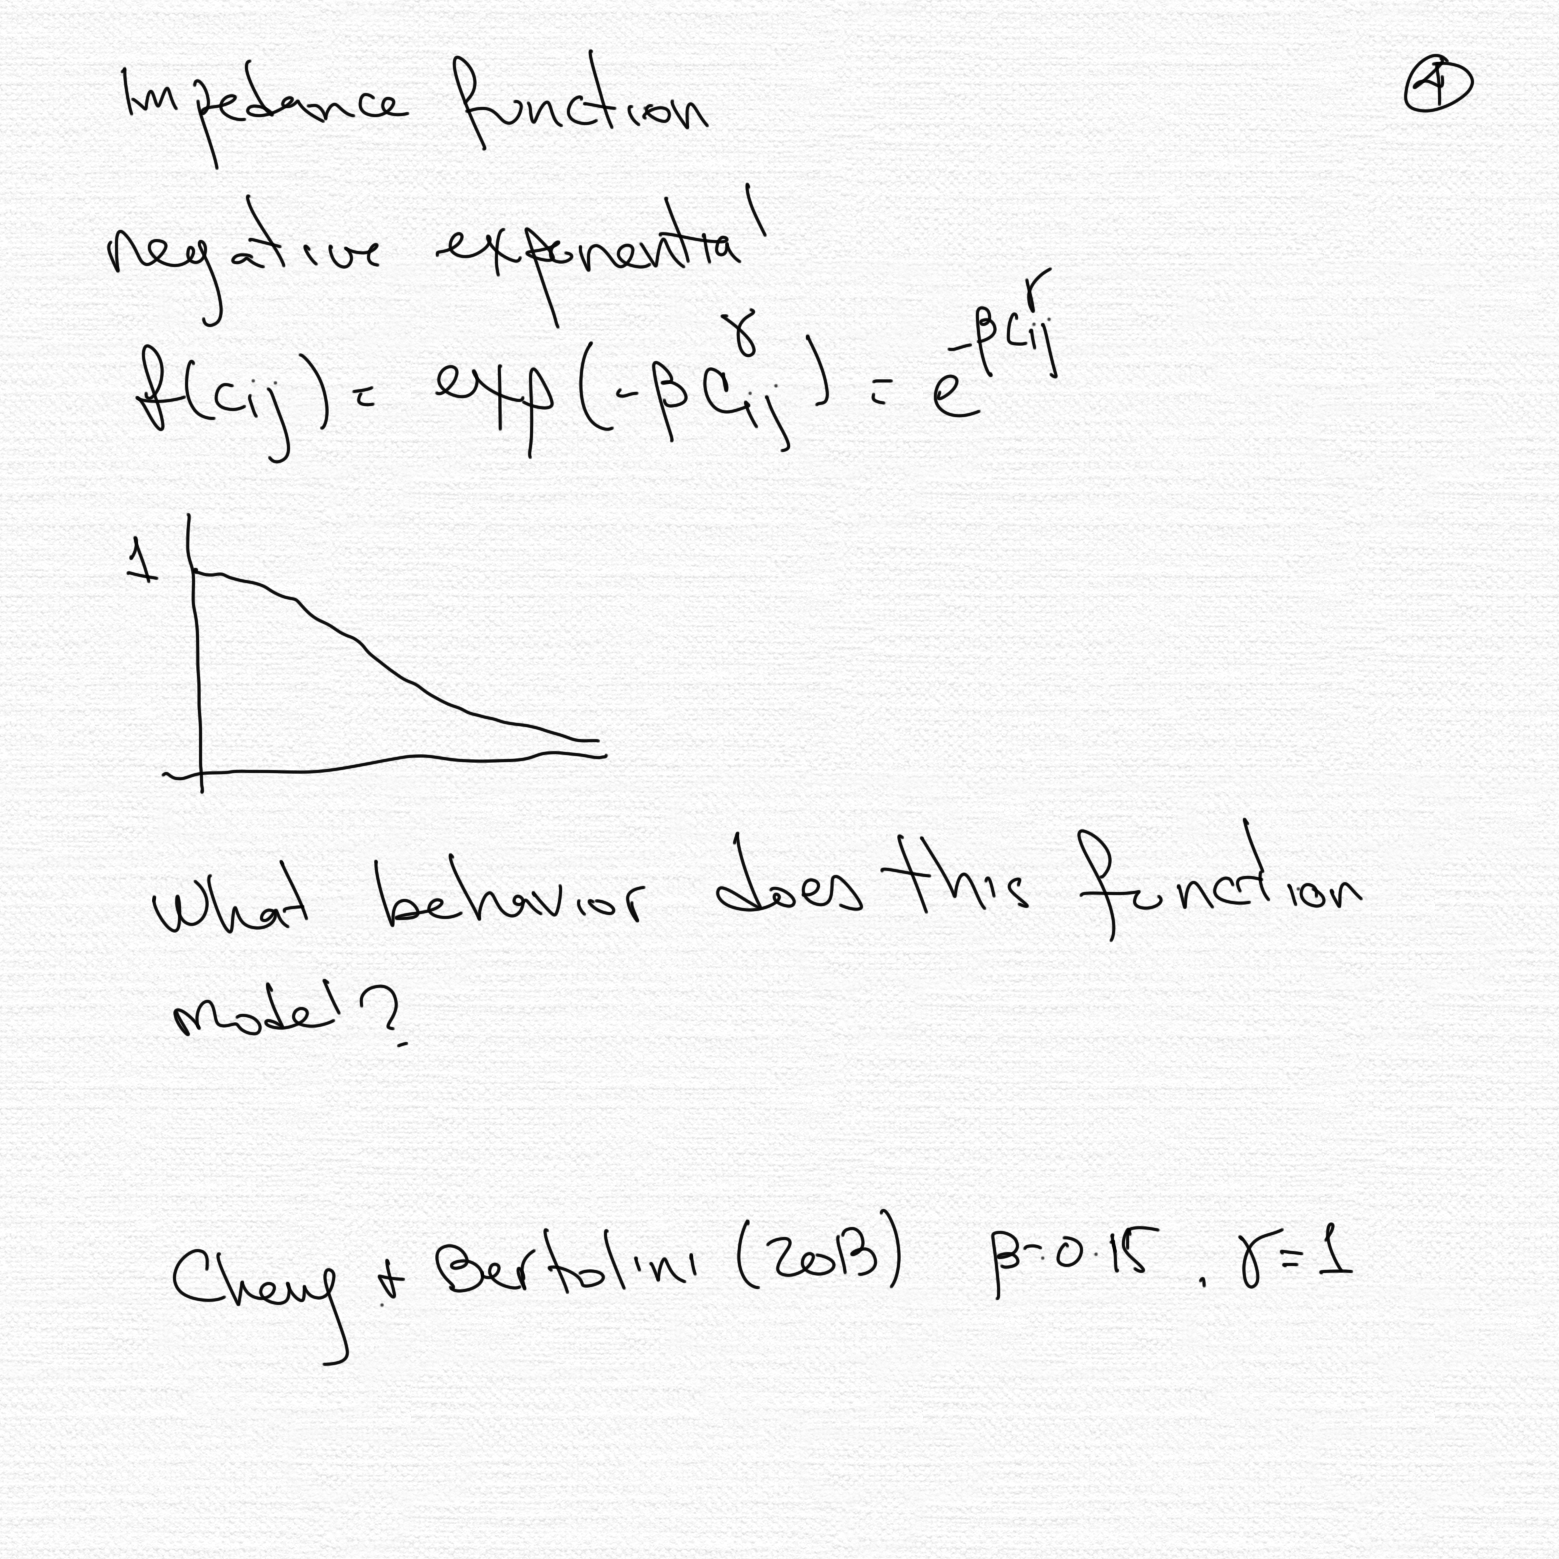 Impedance function
④
negative exponential
f(cij) = exp(-βCij^γ) = e^-βCij^γ
1
What behavior does this function
model?
Cheng + Bertolini (2013) β=0.15, γ=1